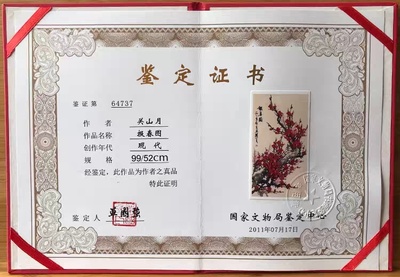 鉴定证书
鉴证第 64737
作者 关山月
作品名称 报春图
创作年代 现代
规格 99/52cm
经鉴定，此作品为作者之真品
特此证明
鉴定人
国家文物局鉴定中心
2011年07月17日